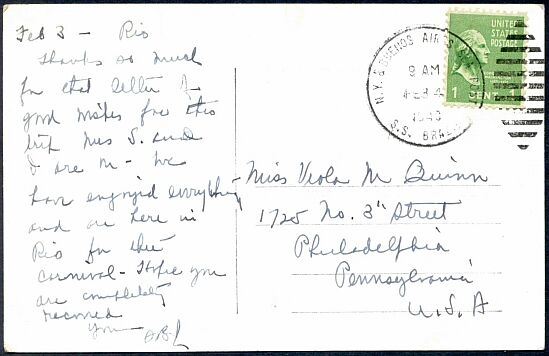 Feb 3 - Rio
Thanks so much
for that letter of
good wishes for this
trip Miss S. and
I are on - We
have enjoyed everything
and are here in
Rio for the
Carnival - Hope you
are completely
recovered
Miss Viola M Quinn
1725 No. 3" Street
Philadelphia
Pennsylvania
U.S.A
N.Y. & BUENOS AIRES
9 AM
FEB 4
S.S. BRAZIL
UNITED
STATES
POSTAGE
1 CENT